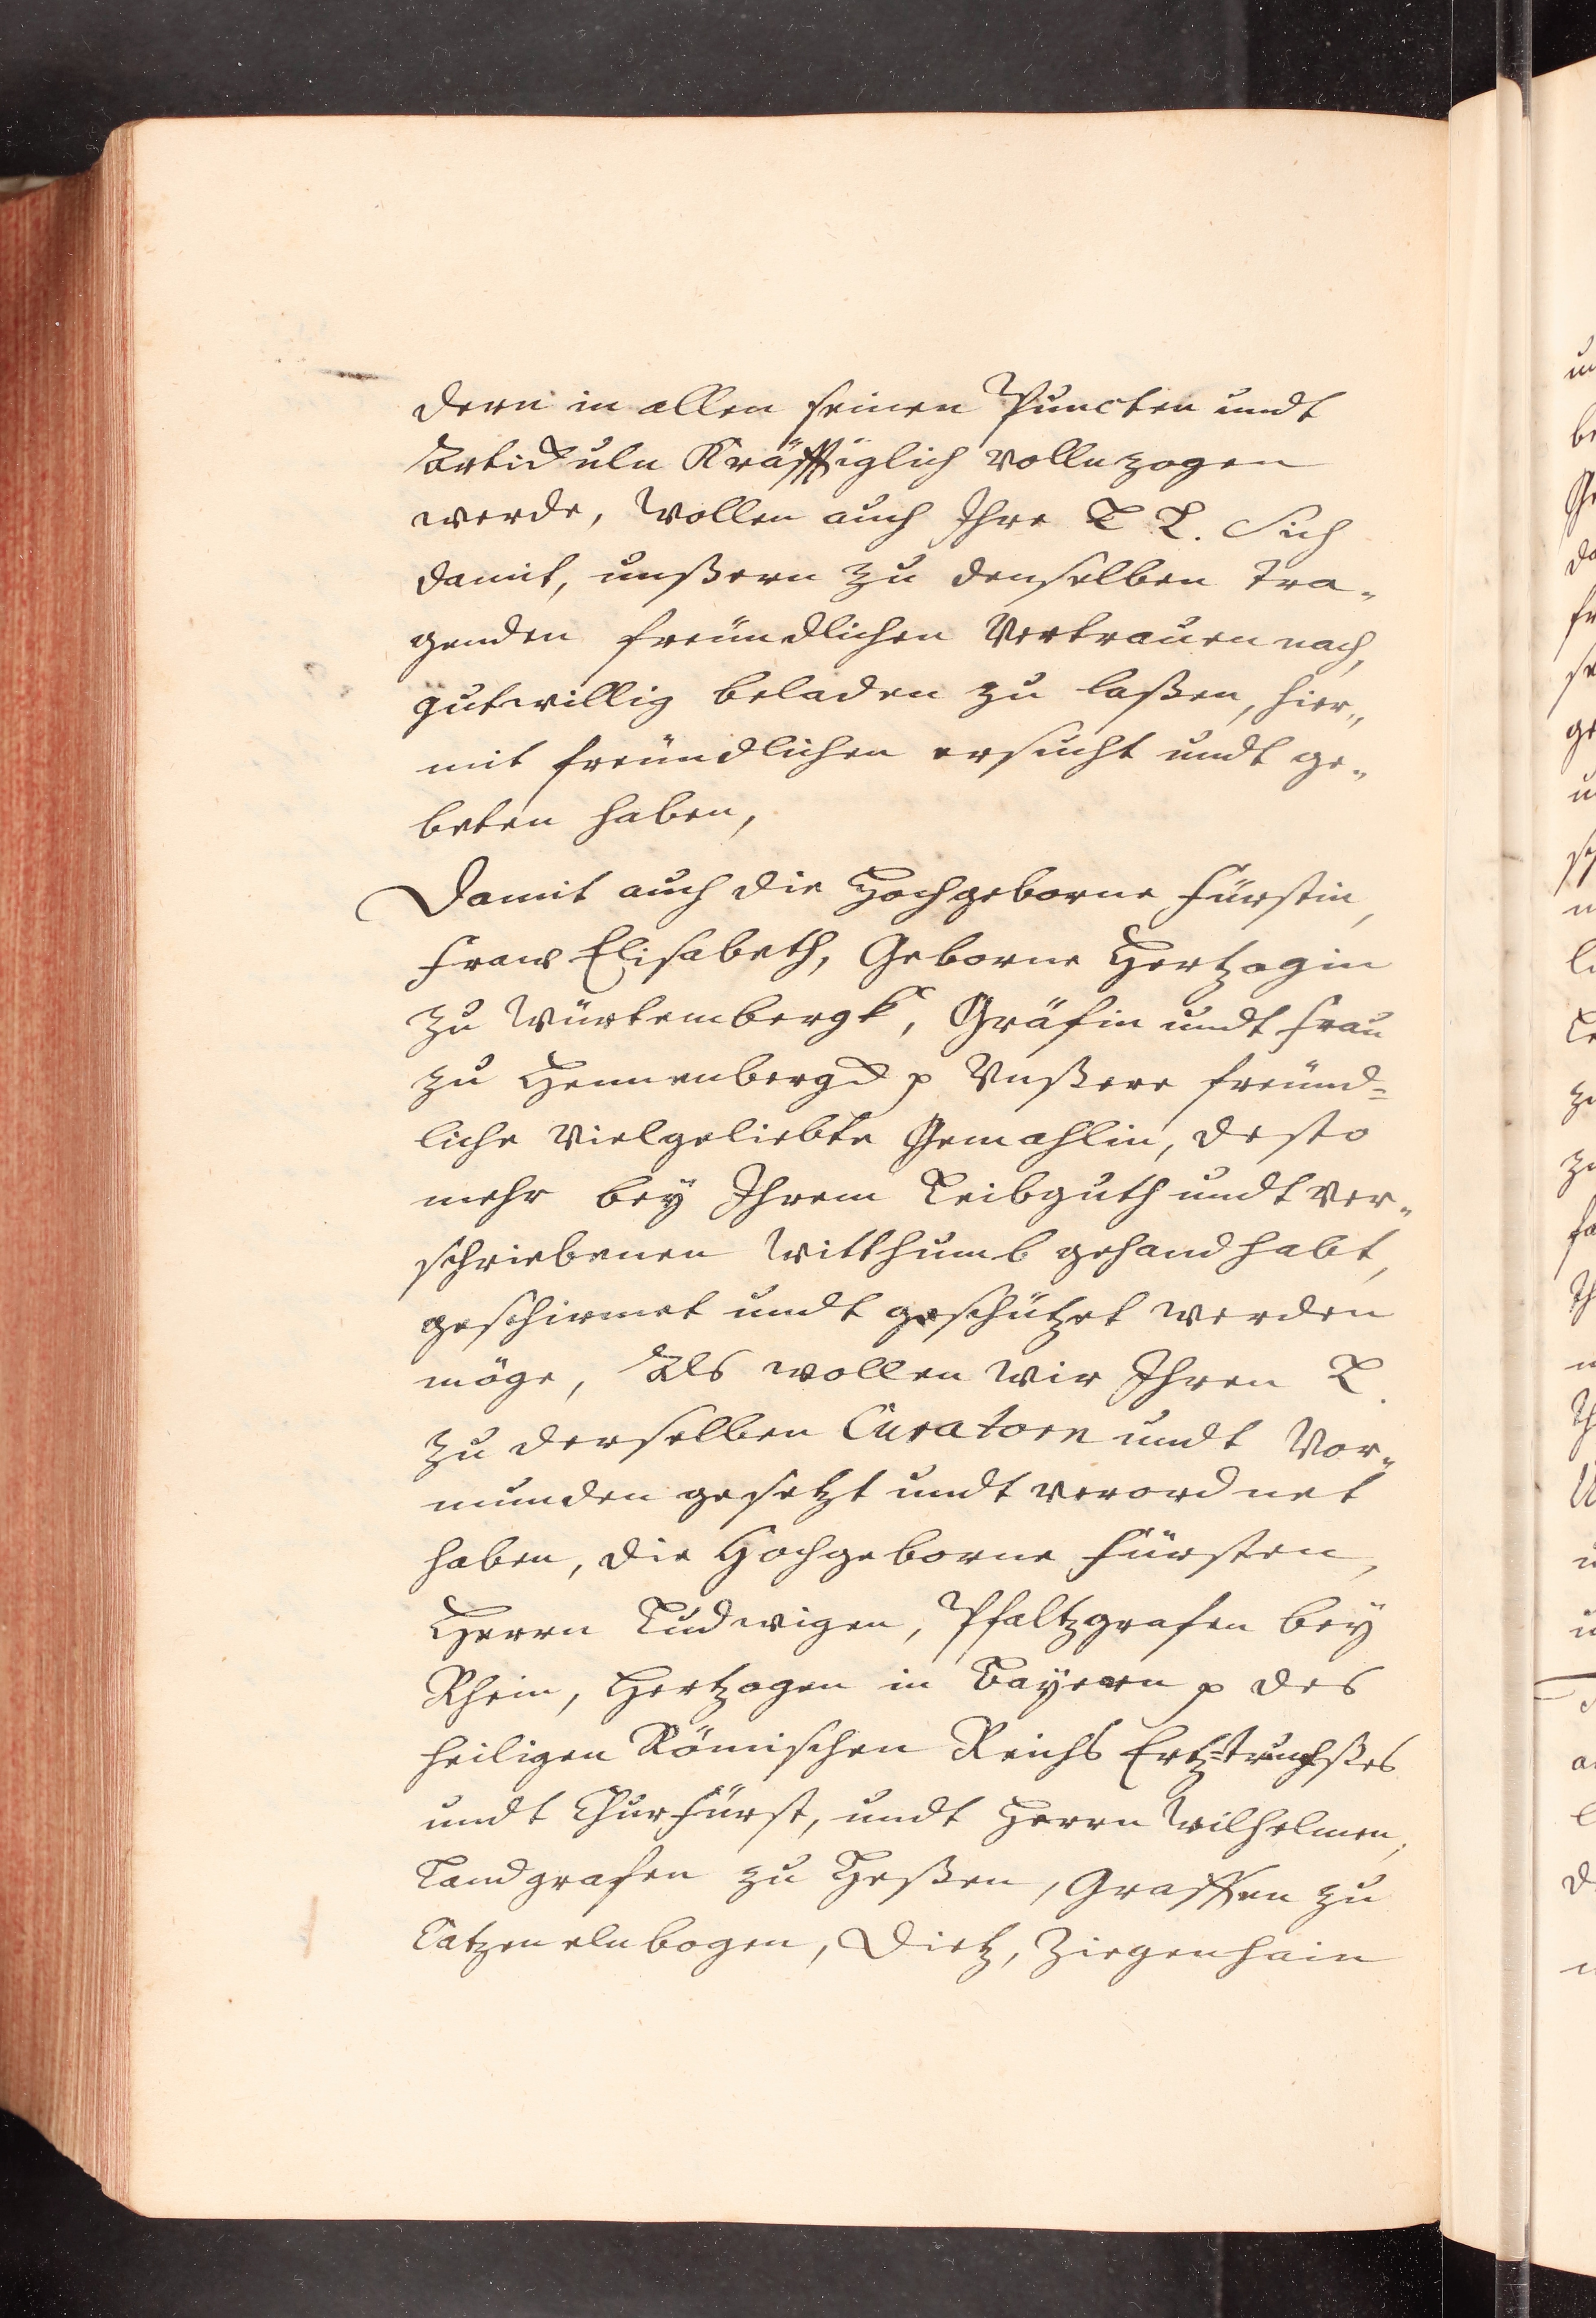 dern in allen seinen Puncten undt
Articuln Kräfftiglich vollnzogen
werde, Wollen auch Ihre L L. Sich
damit, unßern zu denselben tra„
genden freündlichen Vertrauen nach,
gutwillig beladen zu laßen, hier„
mit freündlichen ersucht undt ge„
beten haben,
Damit auch die Hochgeborne Fürstin,
Fraw Elisabeth, Geborne Hertzogin
zu Würtembergk, Gräfin undt Frau
zu Hennenbergck p Vnßere freünd=
liche Vielgeliebte Gemahlin, desto
mehr bey Ihrem Leibguth undt ver„
schriebenen Witthumb gehandhabt,
geschirmet undt geschützet werden
möge, Als wollen Wir Ihren L.
zu derselben Curatorn undt Vor„
munden gesetzt undt verordnet
haben, die Hochgeborne Fürsten,
Herrn Ludwigen, Pfaltzgrafen bey
Rhein, Hertzogen in Bayern p des
heiligen Römischen Reichs Ertztruchßes
undt Churfürst, undt Herrn Wilhelmen,
Landgrafen zu Heßen, Graffen zu
Catzenelnbogen, Dietz, Ziegenhain